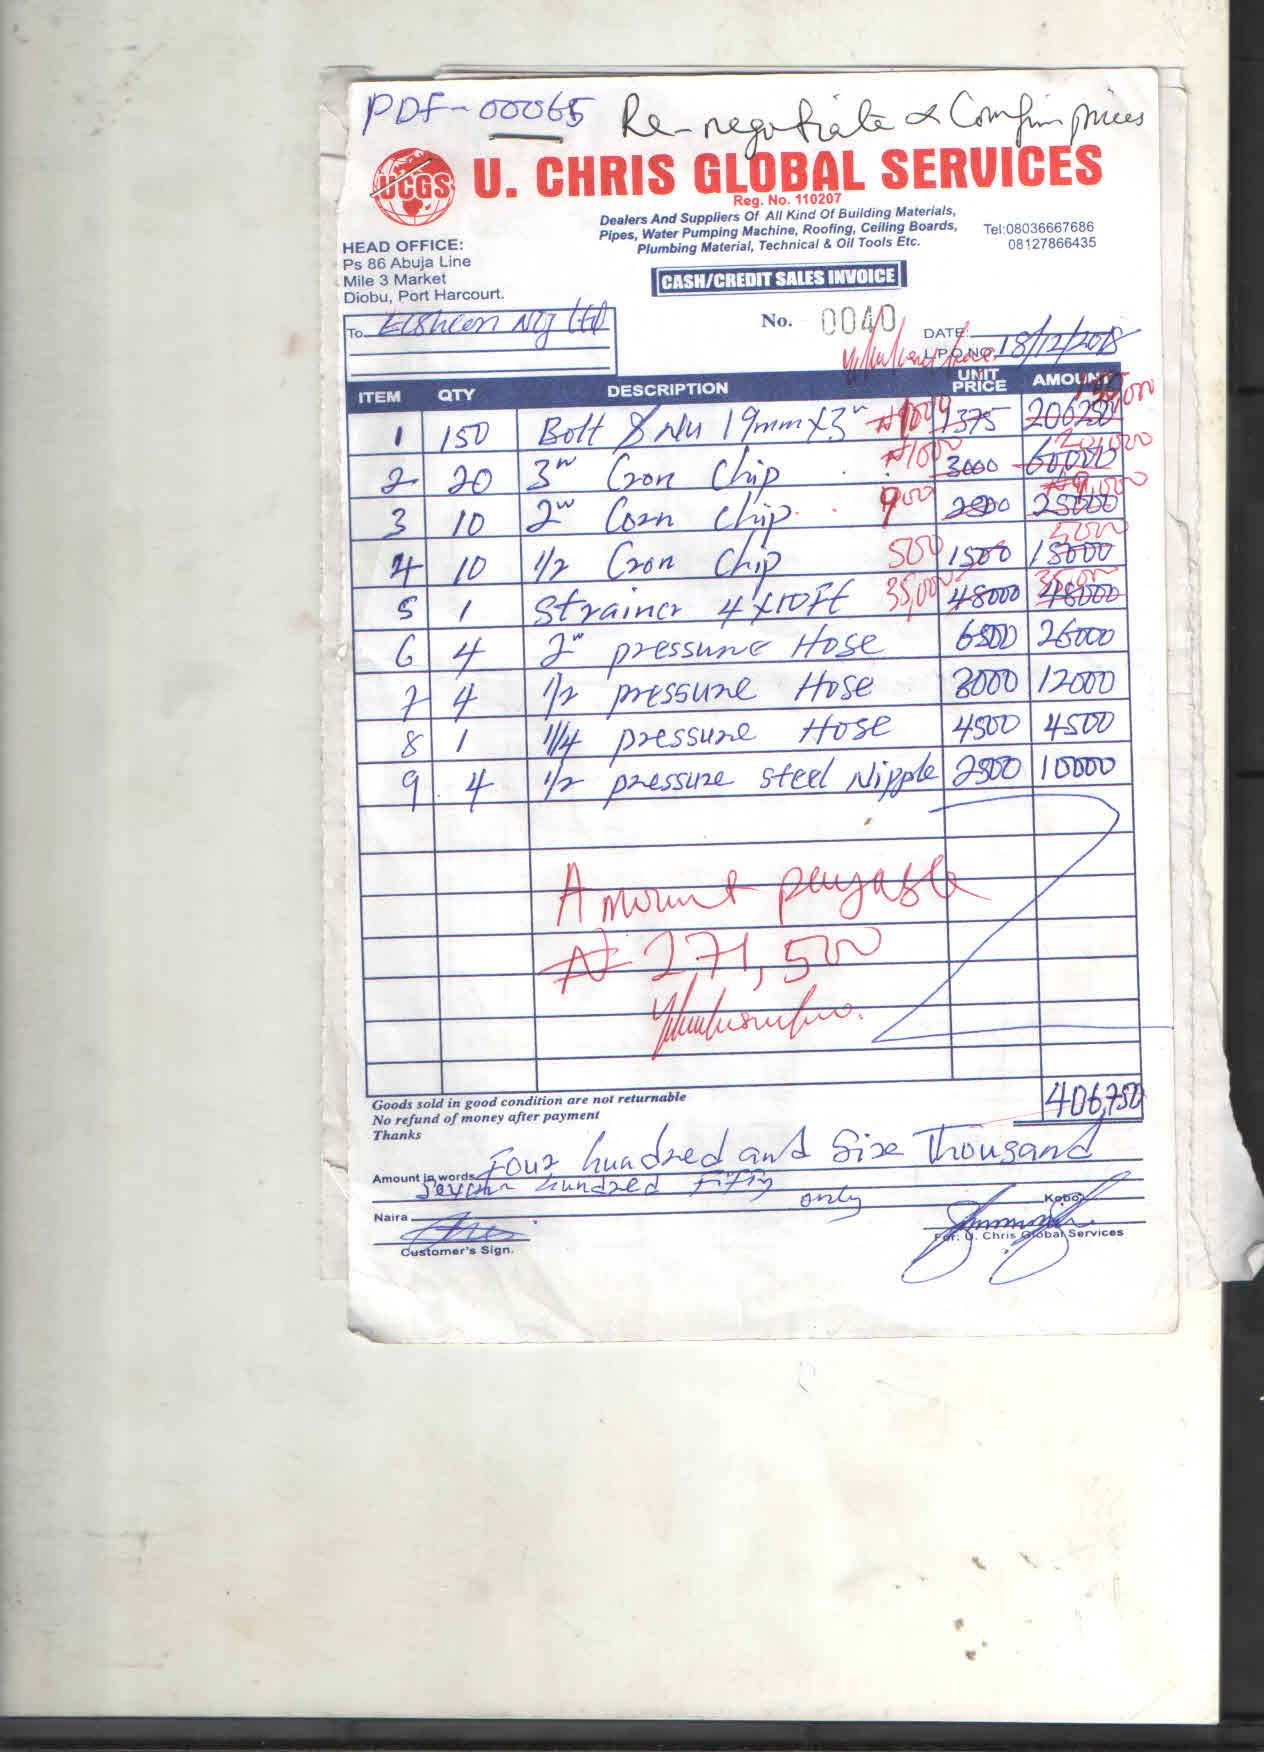 PDF-00065 Re-negotiate & Confirm prices
UCGS
U. CHRIS GLOBAL SERVICES
Reg. No. 110207
Dealers And Suppliers Of All Kind Of Building Materials,
Pipes, Water Pumping Machine, Roofing, Ceiling Boards,
Plumbing Material, Technical & Oil Tools Etc.
Tel:08036667686
08127866435
HEAD OFFICE:
Ps 86 Abuja Line
Mile 3 Market
Diobu, Port Harcourt.
CASH/CREDIT SALES INVOICE
To Nig Ltd
No. 0040
DATE: 18/12/2018
L.P.O NO.
ITEM QTY DESCRIPTION UNIT PRICE AMOUNT
1 150 Bolt & Nu 19mm X 3" 1375 206250
2 20 3" Cron Chip ₦1000 3000 60000 20,000
3 10 2" Corn Chip 900 2500 25000 ₦9,000
4 10 1/2 Cron Chip 500 1500 15000 5,000
5 1 Strainer 4 X 10Ft 35,000 48000 48000 35,000
6 4 2" pressure Hose 6500 26000
7 4 1/2 pressure Hose 3000 12000
8 1 1/4 pressure Hose 4500 4500
9 4 1/2 pressure steel Nipple 2500 10000
Amount payable
₦ 271,500
406,750
Goods sold in good condition are not returnable
No refund of money after payment
Thanks
Amount in words Four hundred and Six Thousand
Seven hundred Fifty only
Naira Kobo
Customer's Sign.
For: U. Chris Global Services